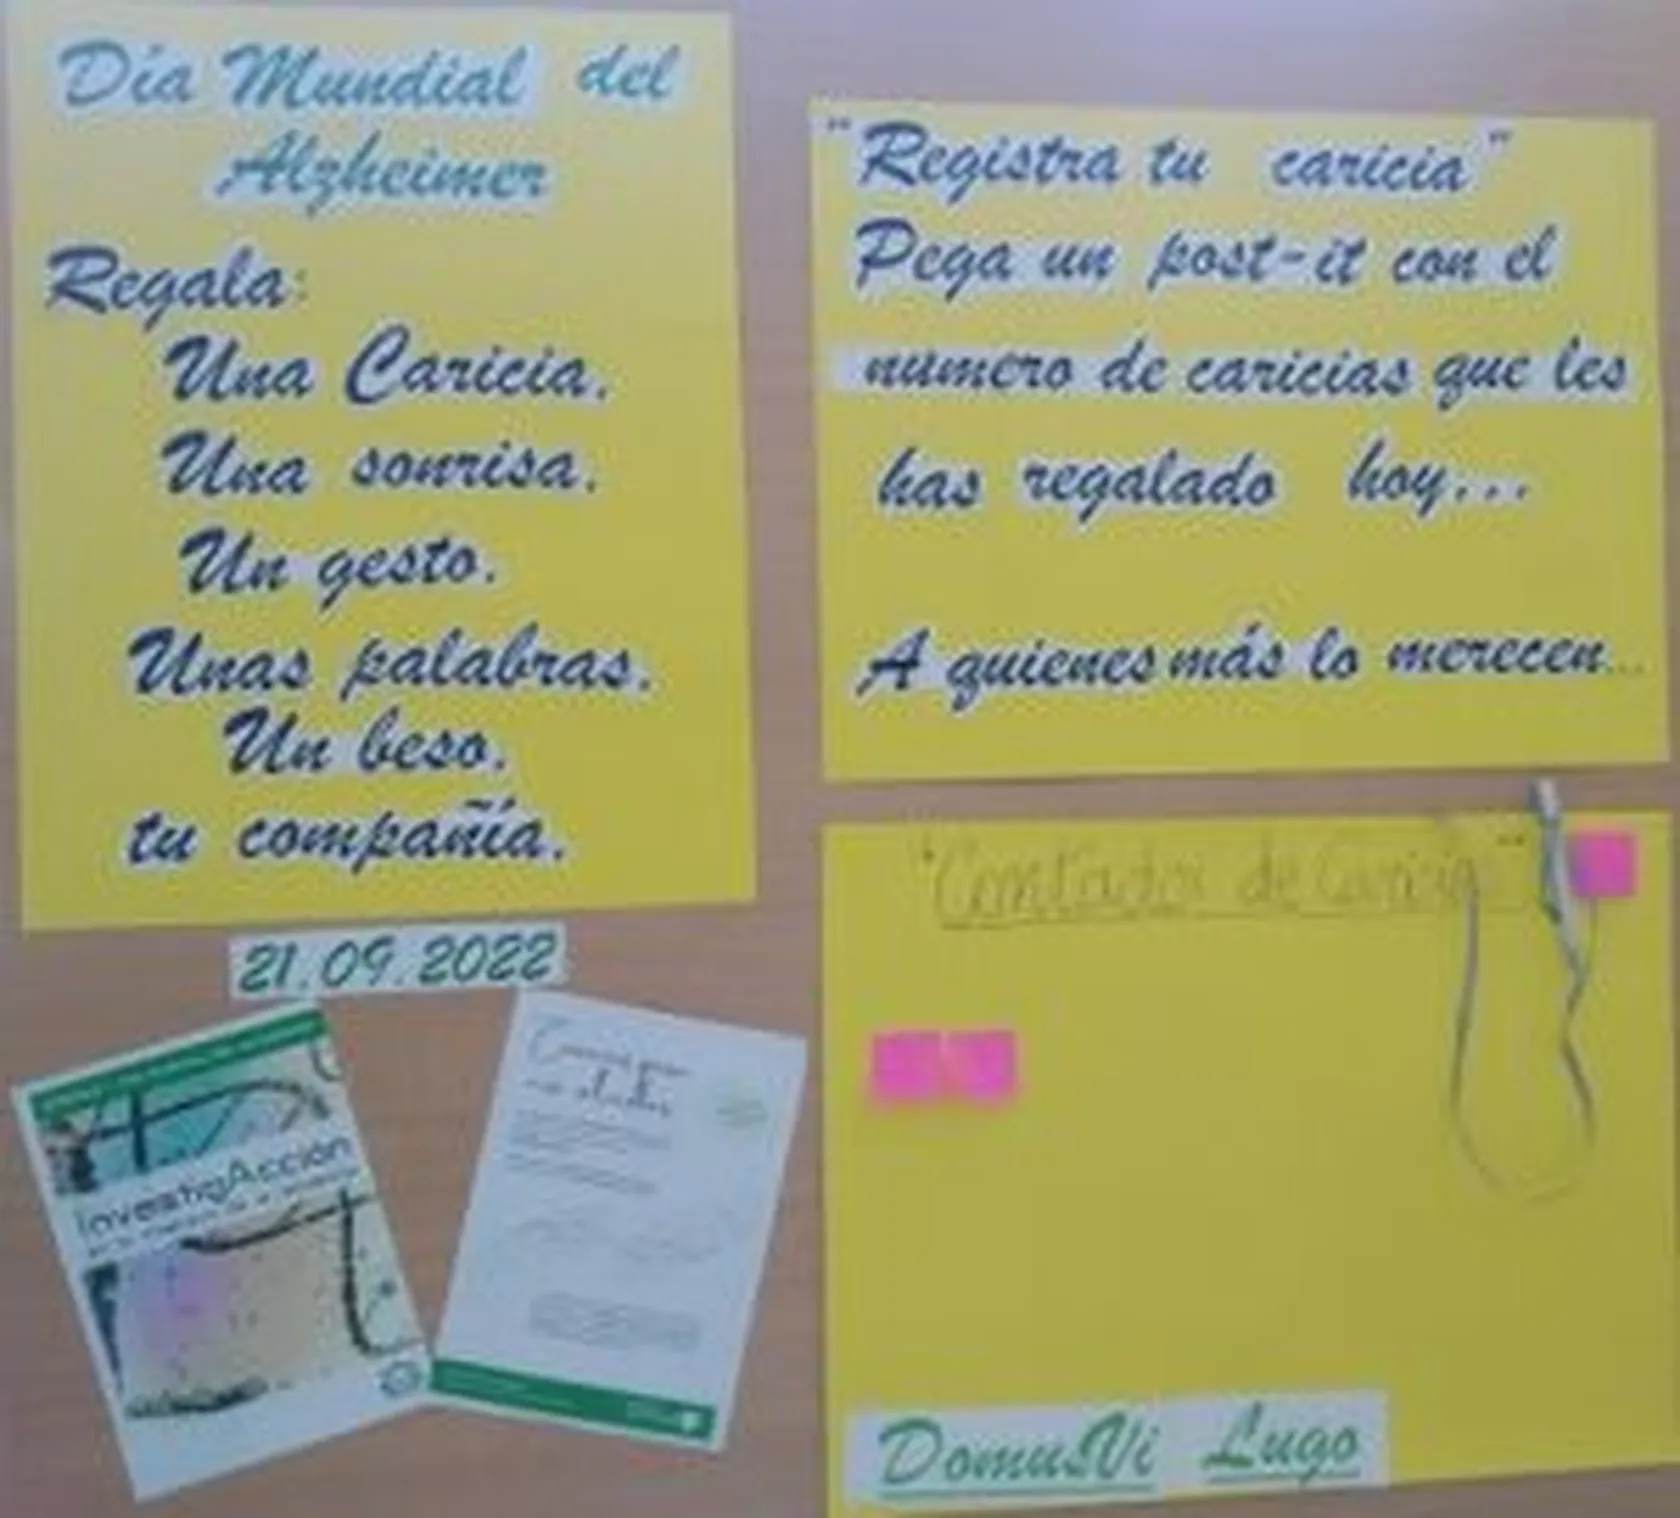 Día Mundial del
Alzheimer
Regala:
Una Caricia.
Una sonrisa.
Un gesto.
Unas palabras.
Un beso.
tu compañía.
21.09.2022
InvestigAcción
"Registra tu caricia"
Pega un post-it con el
numero de caricias que les
has regalado hoy...
A quienes más lo merecen...
"Contador de Caricias"
DomusVi Lugo